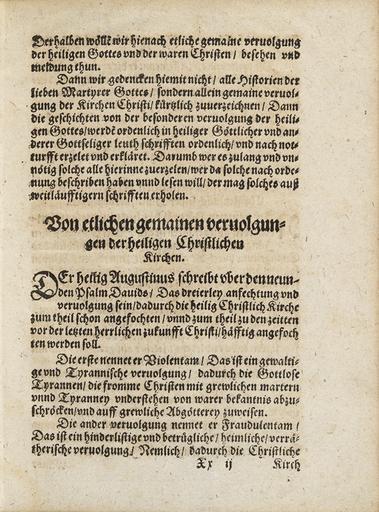 Derhalben wöllẽ wir hienach etliche gemaine veruolgung
der heiligen Gottes vnd der waren Christen / besehen vnd
meldung thun.
Dann wir gedencken hiemit nicht / alle Historien der
lieben Martyrer Gottes / sondern allein gemaine veruol-
gung der Kirchen Christi / kürtzlich zuuerzeichnen / Dann
die geschichten von der besonderen veruolgung der heili-
gen Gottes / werdẽ ordenlich in heiliger Göttlicher vnd an-
derer Gottseliger leuth schrifften ordenlich / vnd nach not-
turfft erzelet vnd erkläret. Darumb wer es zulang vnd vn-
nötig solche alle hierinne zuerzelen / wer da solche nach orde-
nung beschriben haben vnnd lesen will / der mag solches auß
weitläufftigern schrifften erholen.
Von etlichen gemainen veruolgun-
gen der heiligen Christlichen
Kirchen.
DEr heilig Augustinus schreibt vber den neun-
den Psalm Dauids / Das dreierley anfechtung vnd
veruolgung sein / dadurch die heilig Christlich Kirche
zum theil schon angefochten / vnnd zum theil zu den zeitten
vor der letzten herrlichen zukunfft Christi / häfftig angefoch
ten werden soll.
Die erste nennet er Violentam / Das ist ein gewalti-
ge vnd Tyrannische veruolgung / dadurch die Gottlose
Tyrannen / die fromme Christen mit grewlichen martern
vnnd Tyranney vnderstehen von warer bekantnis abzu-
schröcken / vnd auff grewliche Abgötterey zuweisen.
Die ander veruolgung nennet er Fraudulentam /
Das ist ein hinderlistige vnd betrügliche / heimliche / verrä-
therische veruolgung / Nemlich / dadurch die Christliche
Xx ij Kirch